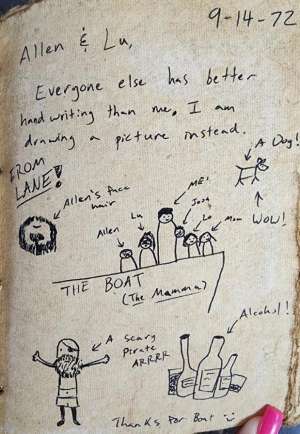 9-14-72
Allen & Lu,
Everyone else has better
hand writing than me. I am
drawing a picture instead.
FROM
LANE!
A Dog!
WOW!
Allen's face
hair
Allen
Lu
ME!
Josh
Lo
Mom
THE BOAT
(The Mamma)
A Scary
Pirate
ARRRR
Alcohol!
Thanks For Boat